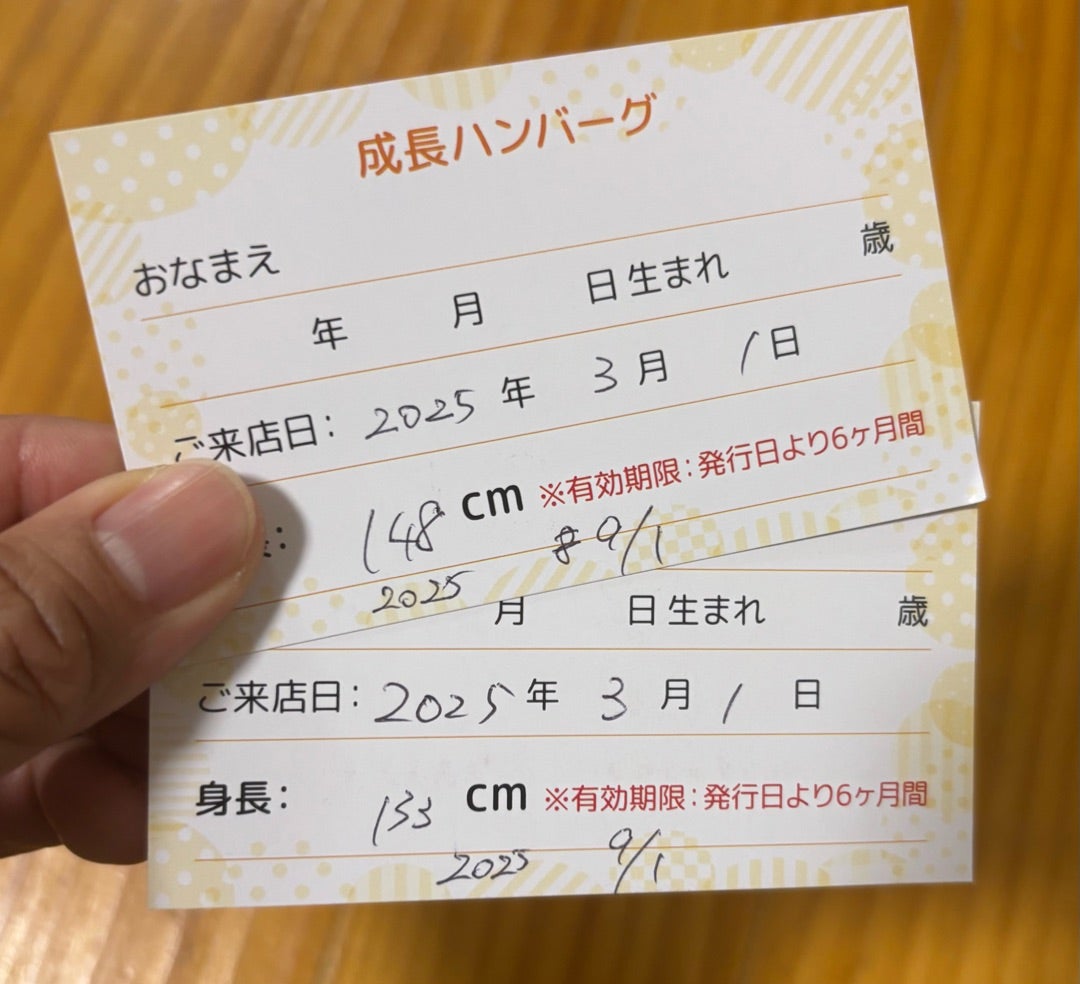 成長ハンバーグ
おなまえ
年 月 日生まれ 歳
ご来店日: 2025年 3月 1日
長: 148 cm ※有効期限:発行日より6ヶ月間
2025 9/1
月 日生まれ 歳
ご来店日: 2025年 3月 1日
身長: 133 cm ※有効期限:発行日より6ヶ月間
2025 9/1